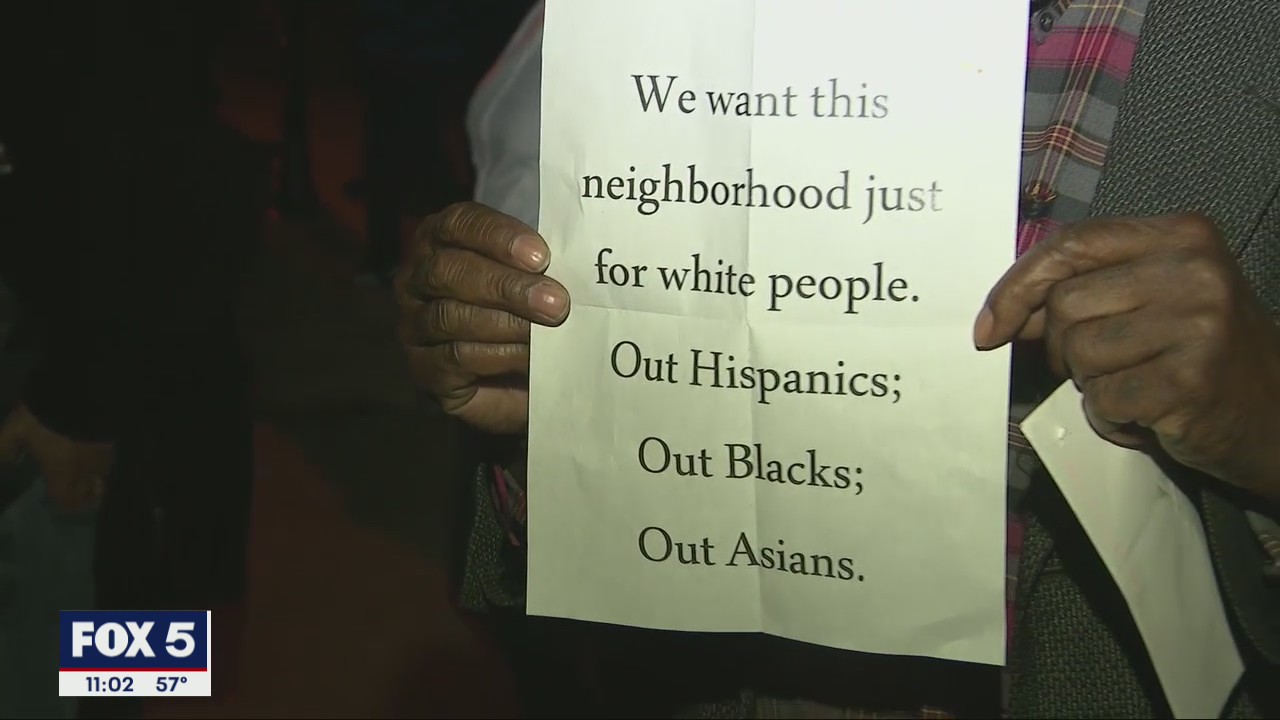 We want this
neighborhood just
for white people.
Out Hispanics;
Out Blacks;
Out Asians.
FOX 5
11:02 57°